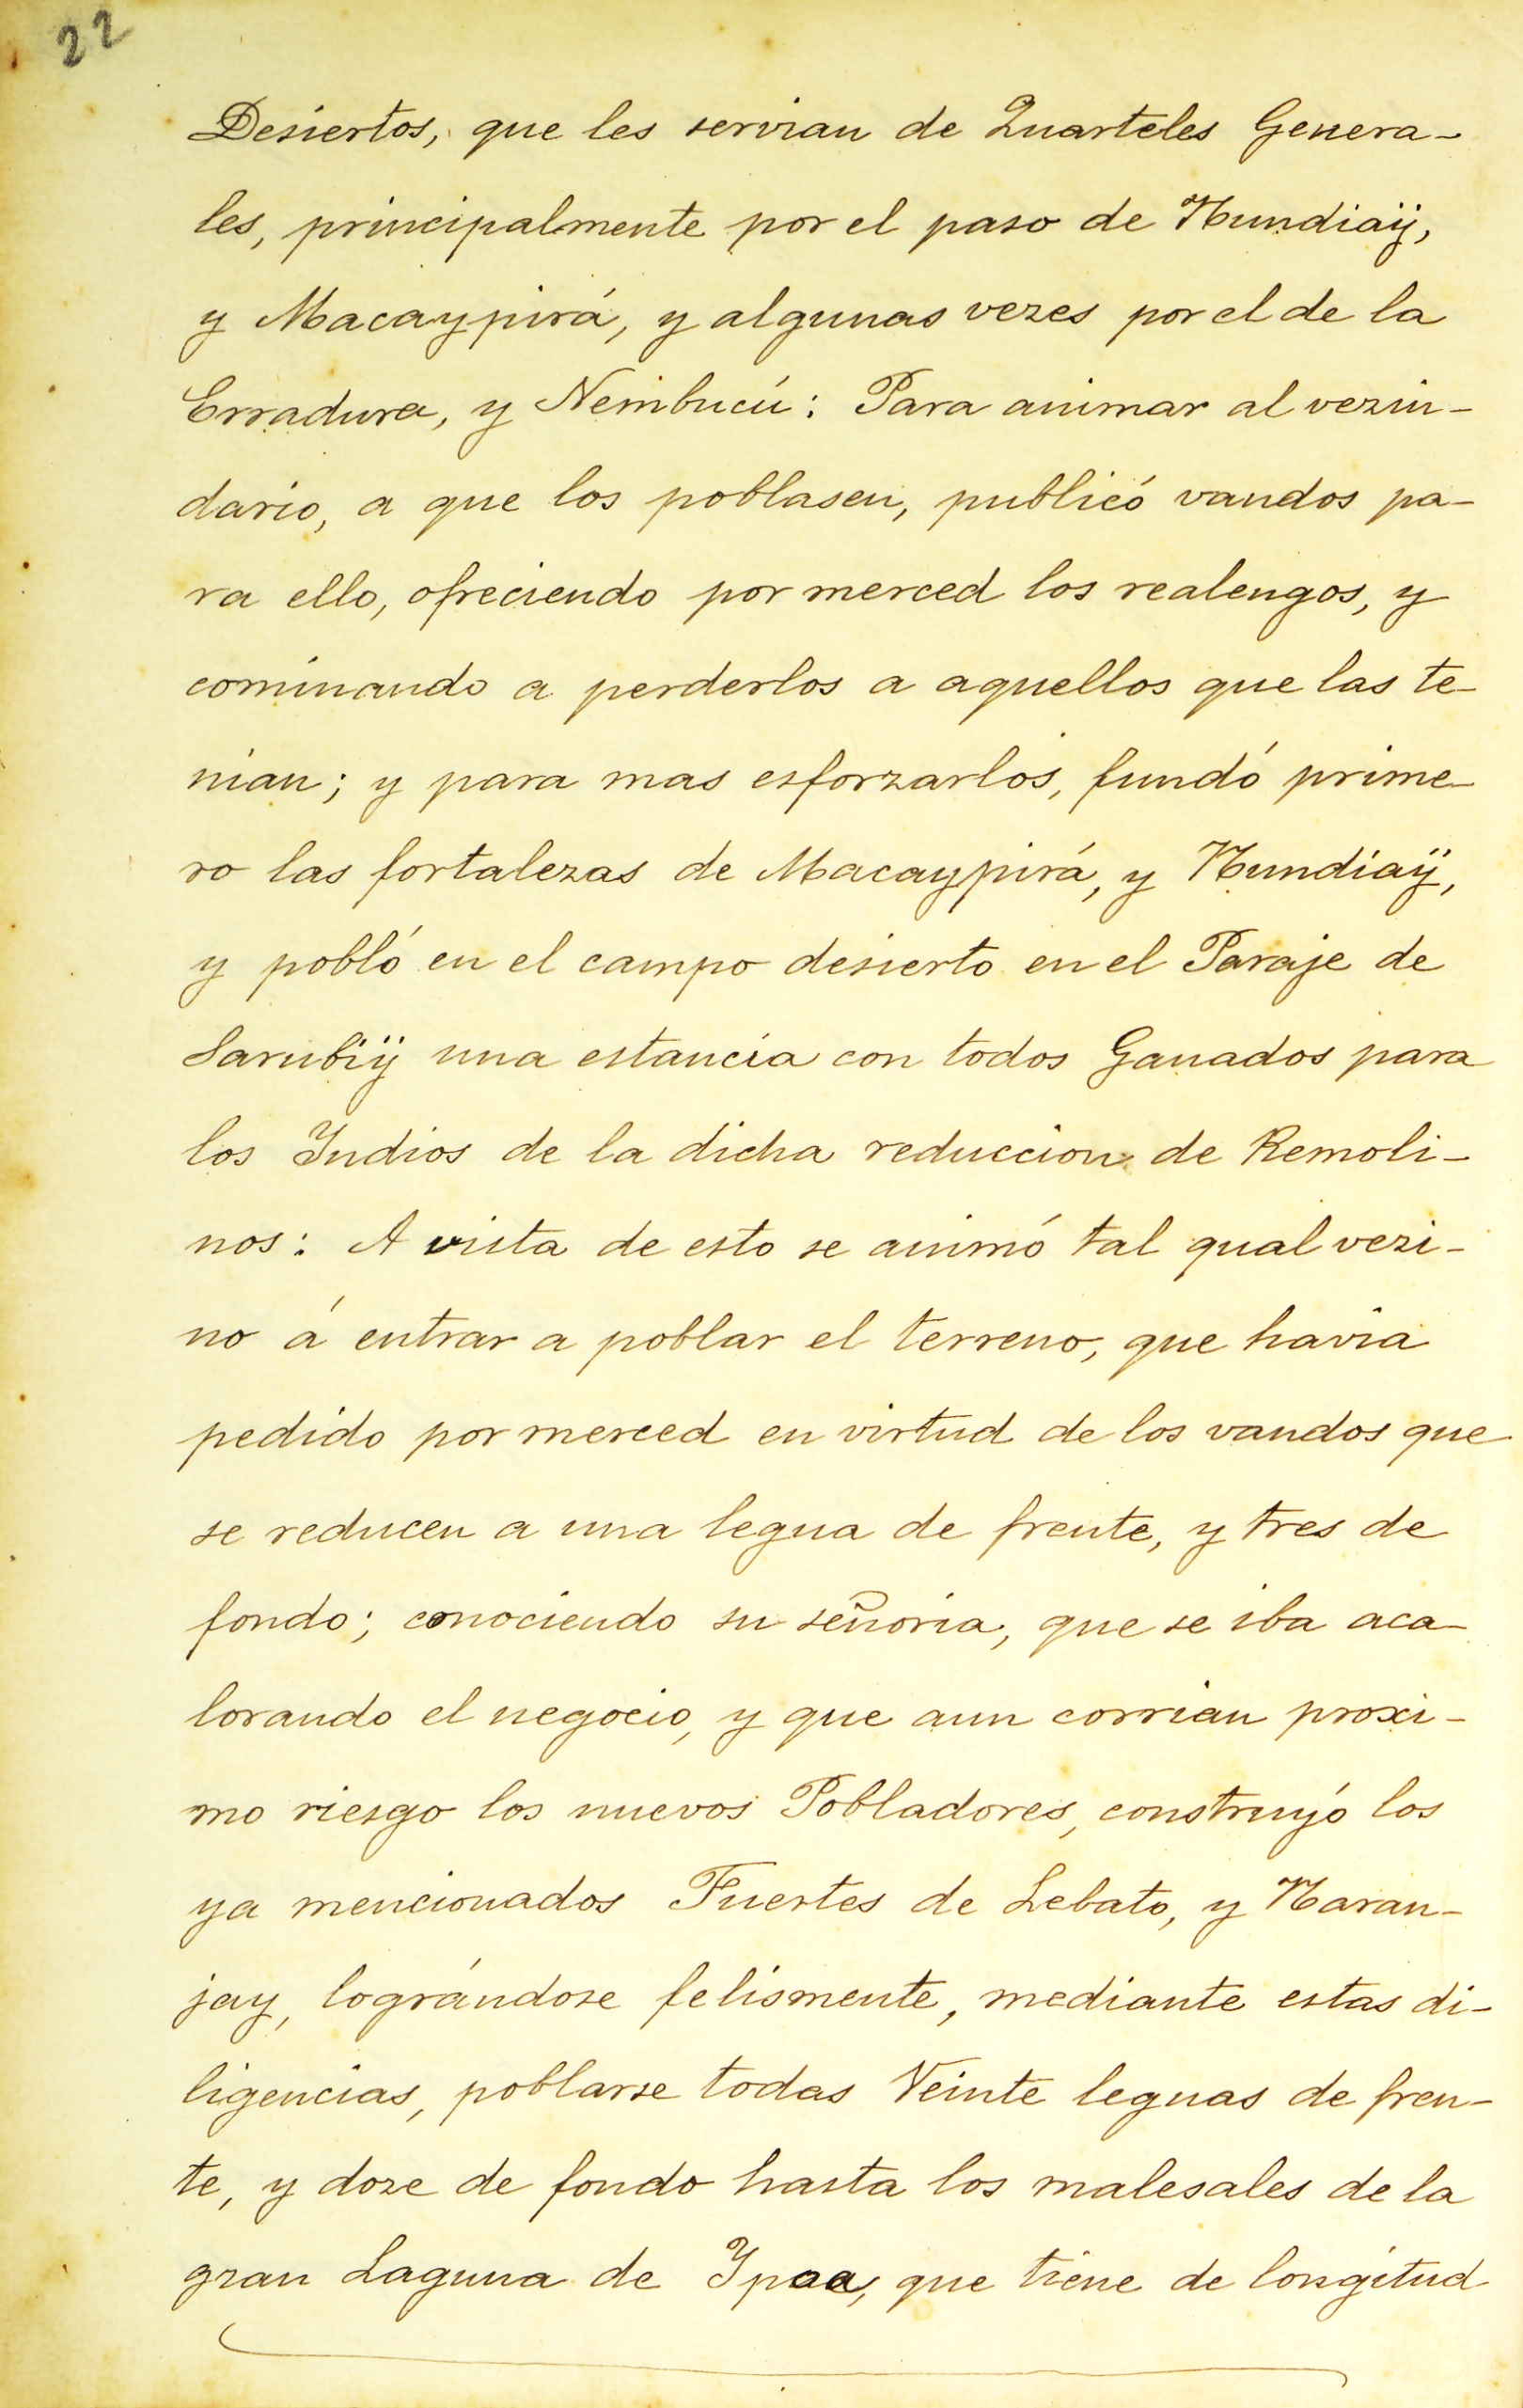 22
Desiertos, que les servian de Quarteles Genera-
les, principalmente por el paso de Ñundiaÿ,
y Macaypirá, y algunas vezes por el de la
Erradura, y Ñeinbucú: Para animar al vezin-
dario, a que los poblasen, publicó vandos pa-
ra ello, ofreciendo por merced los realengos, y
cominando a perderlos a aquellos que las te-
nian; y para mas esforzarlos, fundó prime-
ro las fortalezas de Macaypirá, y Ñundiaÿ,
y pobló en el campo desierto en el Paraje de
Sarubiÿ una estancia con todos Ganados para
los Yndios de la dicha reduccion de Remoli-
nos: A vista de esto se animó tal qual vezi-
no á entrar a poblar el terreno, que havia
pedido por merced en virtud de los vandos que
se reducen a una legua de frente, y tres de
fondo; conociendo su señoria, que se iba aca-
lorando el negocio, y que aun corrian proxi-
mo riesgo los nuevos Pobladores, construyó los
ya mencionados Fuertes de Lebato, y Naran-
jay, lográndose felismente, mediante estas di-
ligencias, poblarse todas Veinte leguas de fren-
te, y doze de fondo hasta los malesales de la
gran Laguna de Ypoa, que tiene de longitud